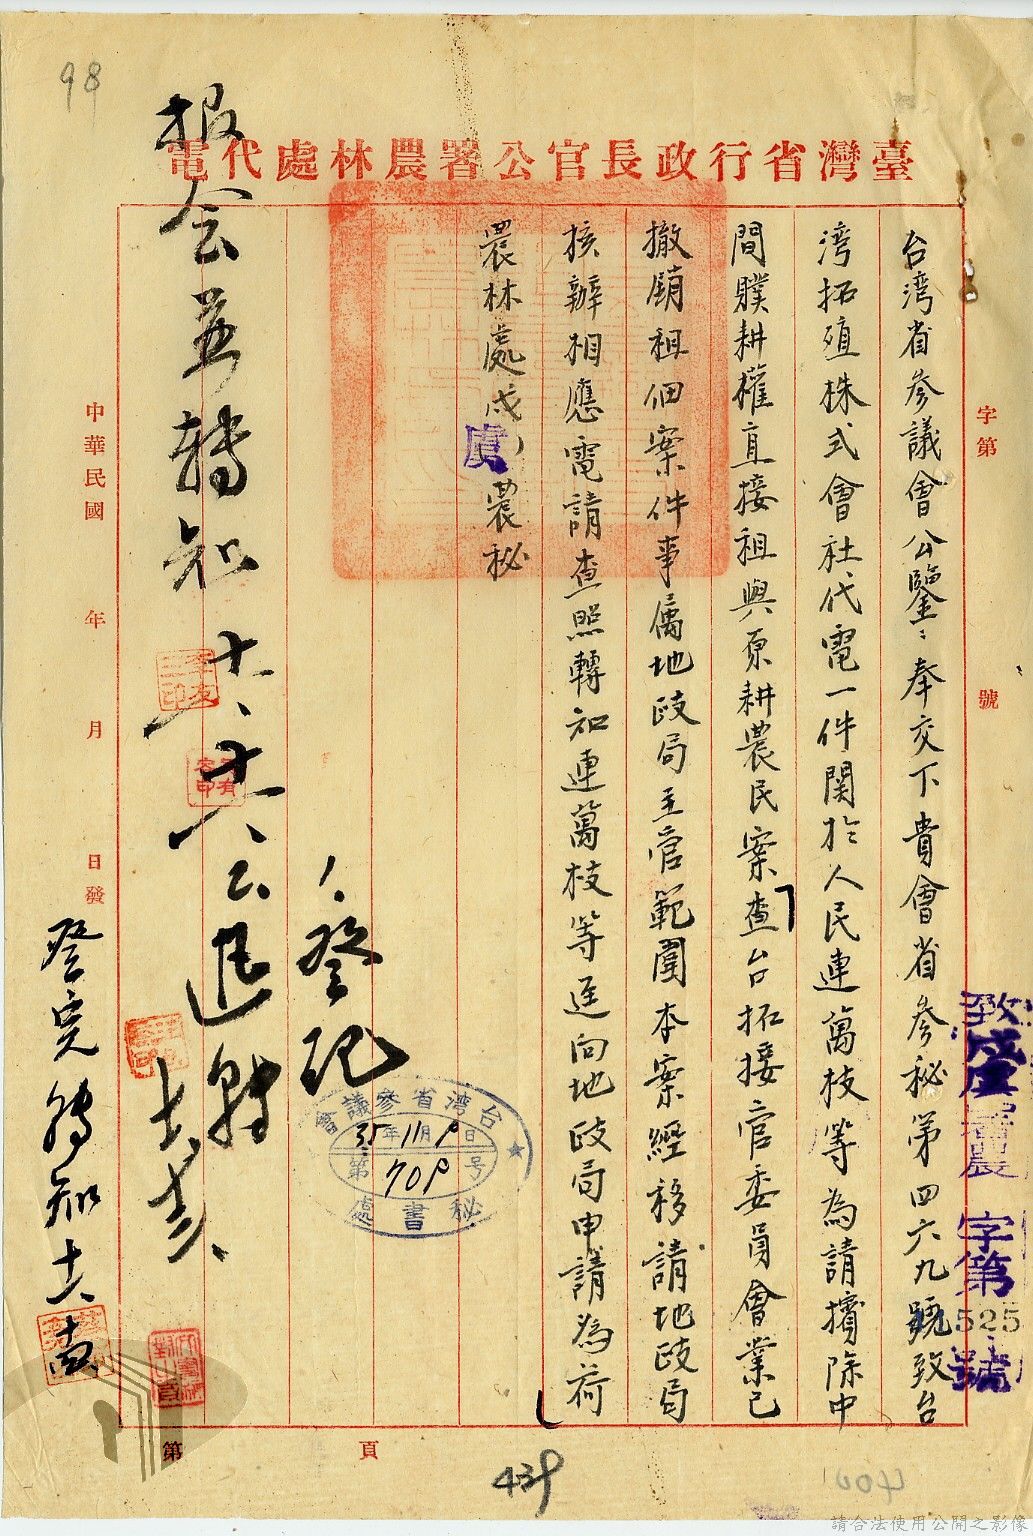 98
臺灣省行政長官公署農林處代電
字第 號
致戌虞署農 字第525號
台湾省參議會公鑒：奉交下貴會省參秘第四六九號致台
湾拓殖株式會社代電一件関於人民連萬枝等為請擯除中
間贌耕權直接租與原耕農民案查台拓接官委員會業已
撤銷租佃案件事屬地政局主官範圍本案經移請地政局
核辦相應電請查照轉知連萬枝等逕向地政局申請為荷
農林處戌虞農秘
1.登記
台湾省參議會
35年11月9日
第709号
秘書處
報会並轉知
中華民國 年 月 日發
登完轉知
第 頁
439
請合法使用公開之影像